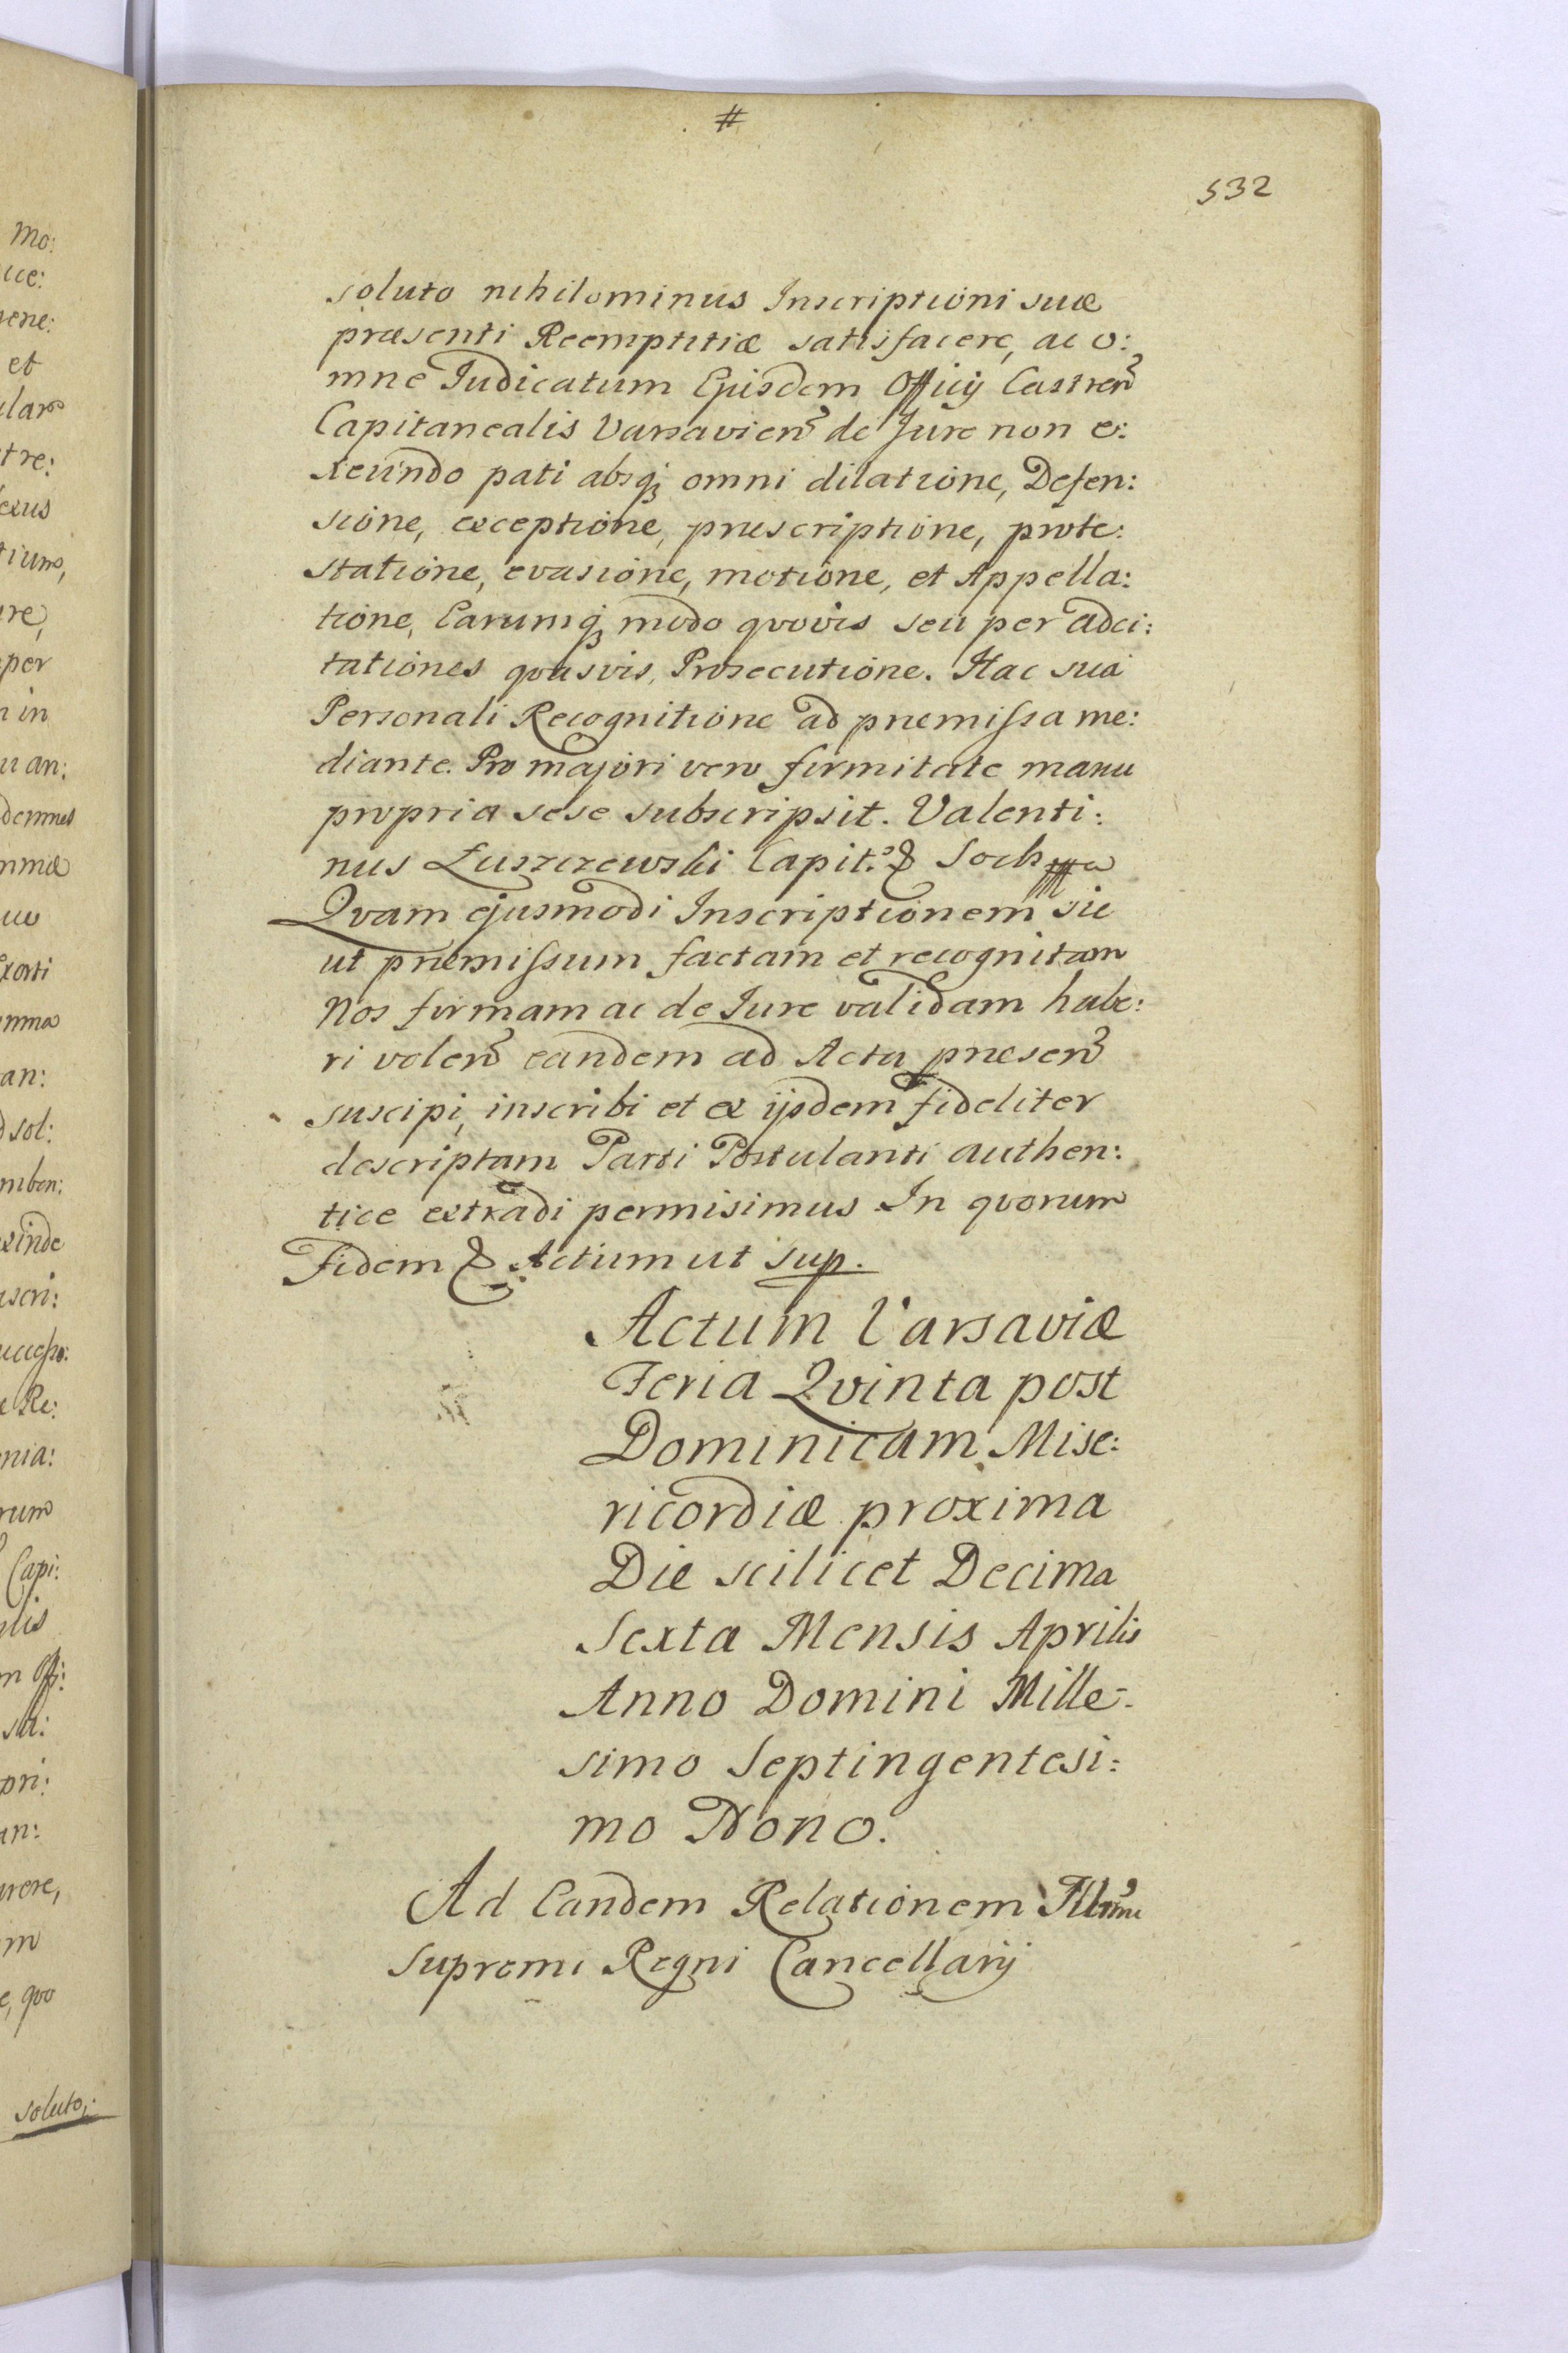 #
532
soluto nihilominus Inscriptioni suæ
præsenti Reemptitiæ satisfacere, ac o:
mne Iudicatum Ejusdem Officÿ Castren̄
Capitanealis Varsavien̄ de Jure non e:
xeundo pati absq; omni dilatione, Defen:
sione, exceptione, præscriptione, prote:
statione, evasione, motione, et Appella:
tione, Earumq; modo qvovis seu per adci:
tationes qvasvis, Prosecutione. Hac sua
Personali Recognitione ad præmissa me:
diante. Pro majori vero firmitate manu
propria sese subscripsit. Valenti:
nus Łuszczewski Capit: & Soch
Qvam ejusmodi Inscriptionem sic
ut præmissum factam et recognitam
Nos firmam ac de Iure validam habe:
ri volen̄ eandem ad Acta præsen̄
suscipi, inscribi et ex ijsdem fideliter
descriptam Parti Postulanti authen:
tice extradi permisimus In qvorum
Fidem & Actum ut sup.
Actum Varsaviæ
Feria Qvinta post
Dominicam Mise:
ricordiæ proxima
Die scilicet Decima
Sexta Mensis Aprilis
Anno Domini Mille-
simo Septingentesi:
mo Nono.
Ad Eandem Relationem Illmi
Supremi Regni Cancellarÿ
Mo:
et
tre:
per
an:
sol:
xinde
Capi:
soluto,